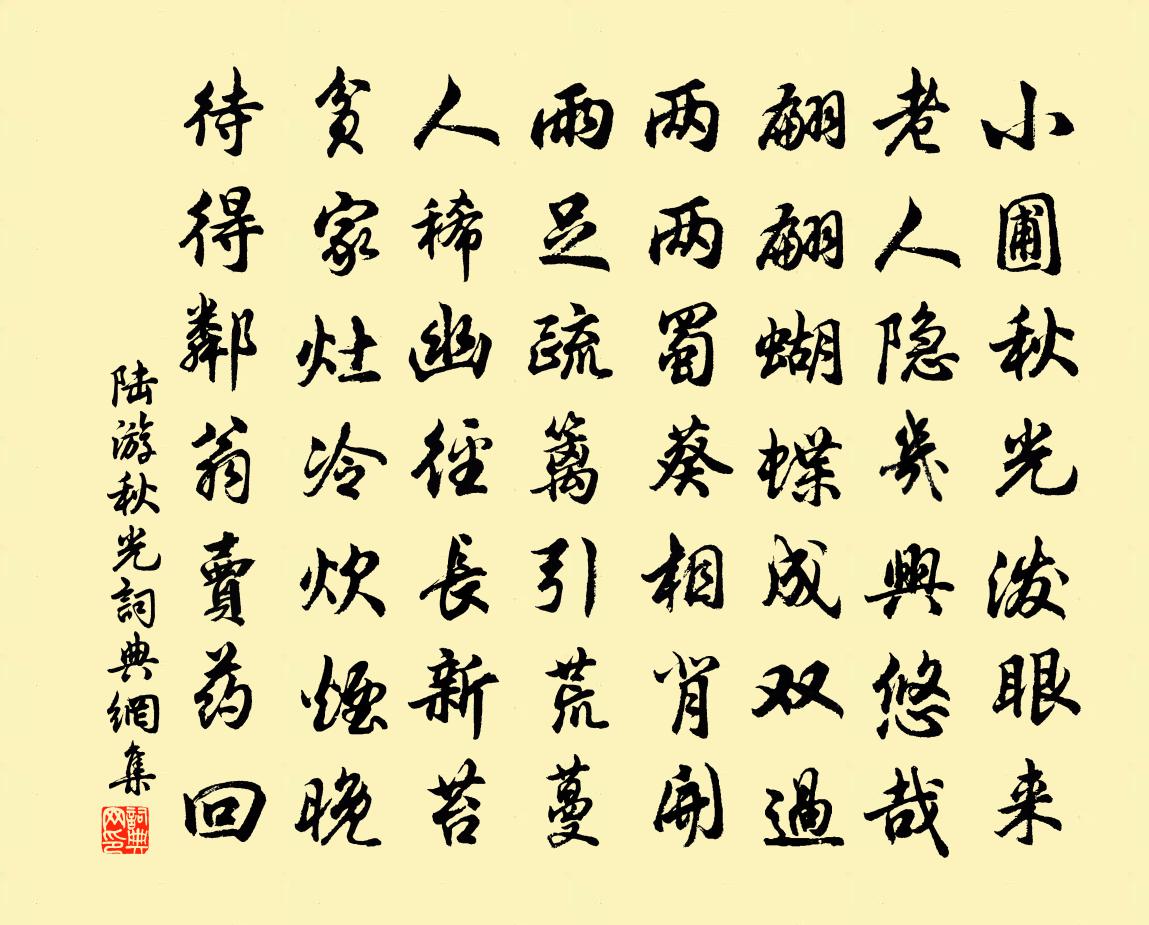 小圃秋光泼眼来
老人隐几兴悠哉
翩翩蝴蝶成双過
两两蜀葵相背開
雨足疏篱引荒蔓
人稀幽径長新苔
贫家灶冷炊煙晚
待得鄰翁賣药回
陆游秋光詞典網集
詞典网印